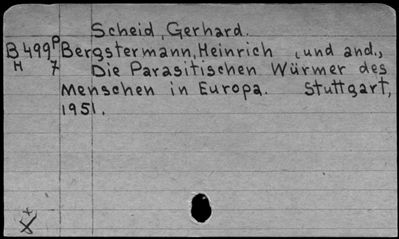 Scheid, Gerhard.
B499P Bergstermann, Heinrich , und and.,
H 7 Die Parasitischen Würmer des
Menschen in Europa. Stuttgart,
1951.